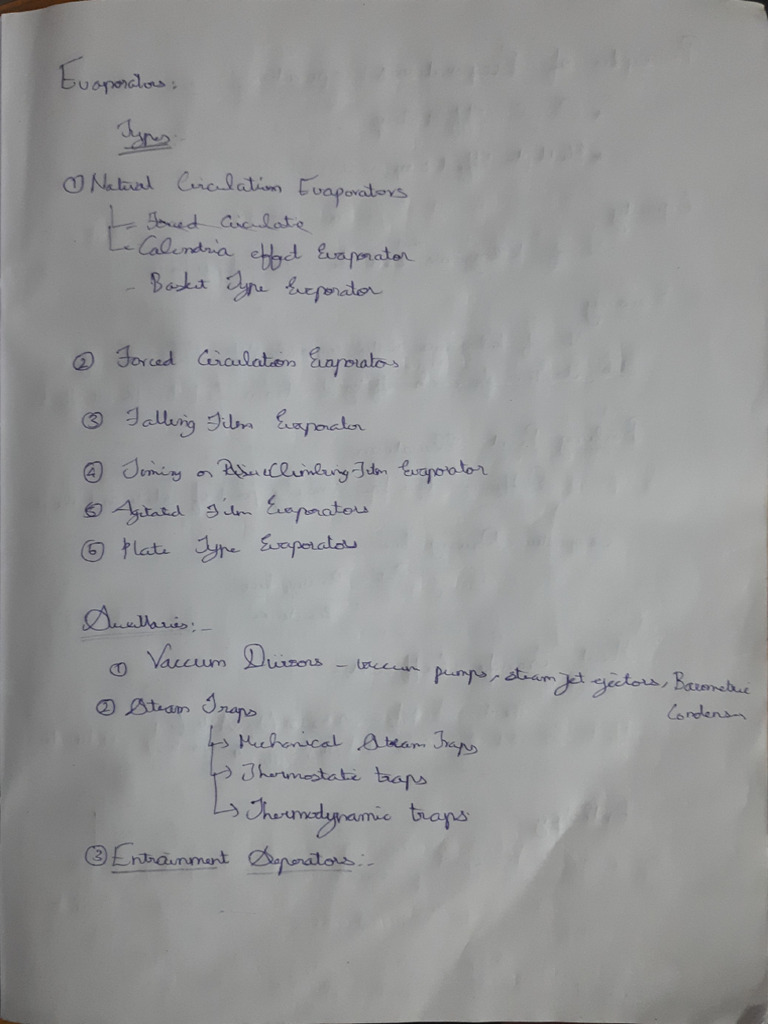 Evaporators:
Types
① Natural Circulation Evaporators
Forced Circulate
Calendria effect Evaporator
- Basket Type Evaporator
② Forced Circulation Evaporators
③ Falling Film Evaporator
④ or Climbing Film Evaporator
⑤ Agitated Film Evaporators
⑥ Plate Type Evaporators
Auxillaries:-
① Vaccum - vaccum pumps, steam jet ejectors, Barometric
Condenser
② Steam Traps
↳ Mechanical Steam Traps
↳ Thermostatic traps
↳ Thermodynamic traps
③ Entrainment Seperators:-